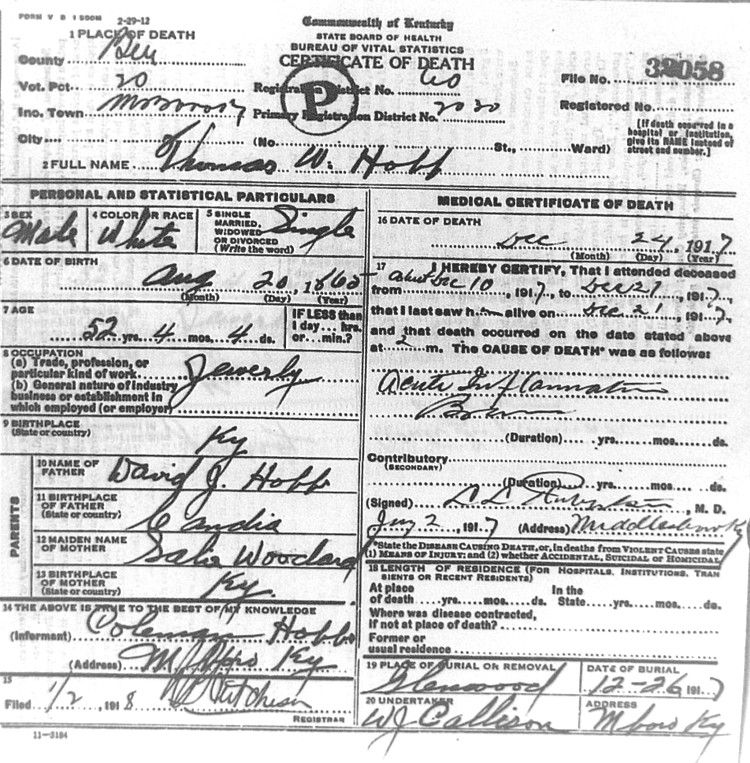 FORM V S 1 500M 2-29-12
Commonwealth of Kentucky
STATE BOARD OF HEALTH
BUREAU OF VITAL STATISTICS
CERTIFICATE OF DEATH
1 PLACE OF DEATH
County Bell
Vot. Pct 20
Registration District No. 60
File No. 32058
Inc. Town
Primary Registration District No. 2020
Registered No.
City (No. St., Ward)
[If death occurred in a hospital or institution, give its NAME instead of street and number.]
P
2 FULL NAME Thomas W. Hobb
PERSONAL AND STATISTICAL PARTICULARS
3 SEX Male
4 COLOR OR RACE White
5 SINGLE MARRIED, WIDOWED OR DIVORCED (Write the word) Single
6 DATE OF BIRTH
Aug 20, 1865
(Month) (Day) (Year)
7 AGE
52 yrs. 4 mos. 4 ds.
IF LESS than 1 day... hrs. or... min.?
8 OCCUPATION
(a) Trade, profession, or particular kind of work.
(b) General nature of industry business or establishment in which employed (or employer)
Jewerly
9 BIRTHPLACE
(State or country) Ky
PARENTS
10 NAME OF FATHER David J. Hobb
11 BIRTHPLACE OF FATHER (State or country)
12 MAIDEN NAME OF MOTHER Woodard
13 BIRTHPLACE OF MOTHER (State or country) Ky.
14 THE ABOVE IS TRUE TO THE BEST OF MY KNOWLEDGE
(Informant) Coleman Hobb
(Address) M'boro Ky
15
Filed 1/2, 1918
REGISTRAR
11-3184
MEDICAL CERTIFICATE OF DEATH
16 DATE OF DEATH
Dec 24, 1917
(Month) (Day) (Year)
17 I HEREBY CERTIFY, That I attended deceased
from about Dec 10, 1917, to Dec 21, 1917,
that I last saw him alive on Dec 21, 1917,
and that death occurred on the date stated above
at 2 m. The CAUSE OF DEATH* was as follows:
Acute Inflammation
(Duration) yrs. mos. ds.
Contributory
(SECONDARY)
(Duration) yrs. mos. ds.
(Signed) M. D.
Jany 2, 1917 (Address) Middlesboro Ky
*State the DISEASE CAUSING DEATH, or, in deaths from VIOLENT CAUSES state
(1) MEANS OF INJURY; and (2) whether ACCIDENTAL, SUICIDAL or HOMICIDAL
18 LENGTH OF RESIDENCE (FOR HOSPITALS, INSTITUTIONS, TRANSIENTS OR RECENT RESIDENTS)
At place of death yrs. mos. ds. In the State yrs. mos. ds.
Where was disease contracted,
if not at place of death?
Former or
usual residence
19 PLACE OF BURIAL OR REMOVAL
Glenwood
DATE OF BURIAL
12-26 1917
20 UNDERTAKER
W J Callison
ADDRESS
Mboro Ky